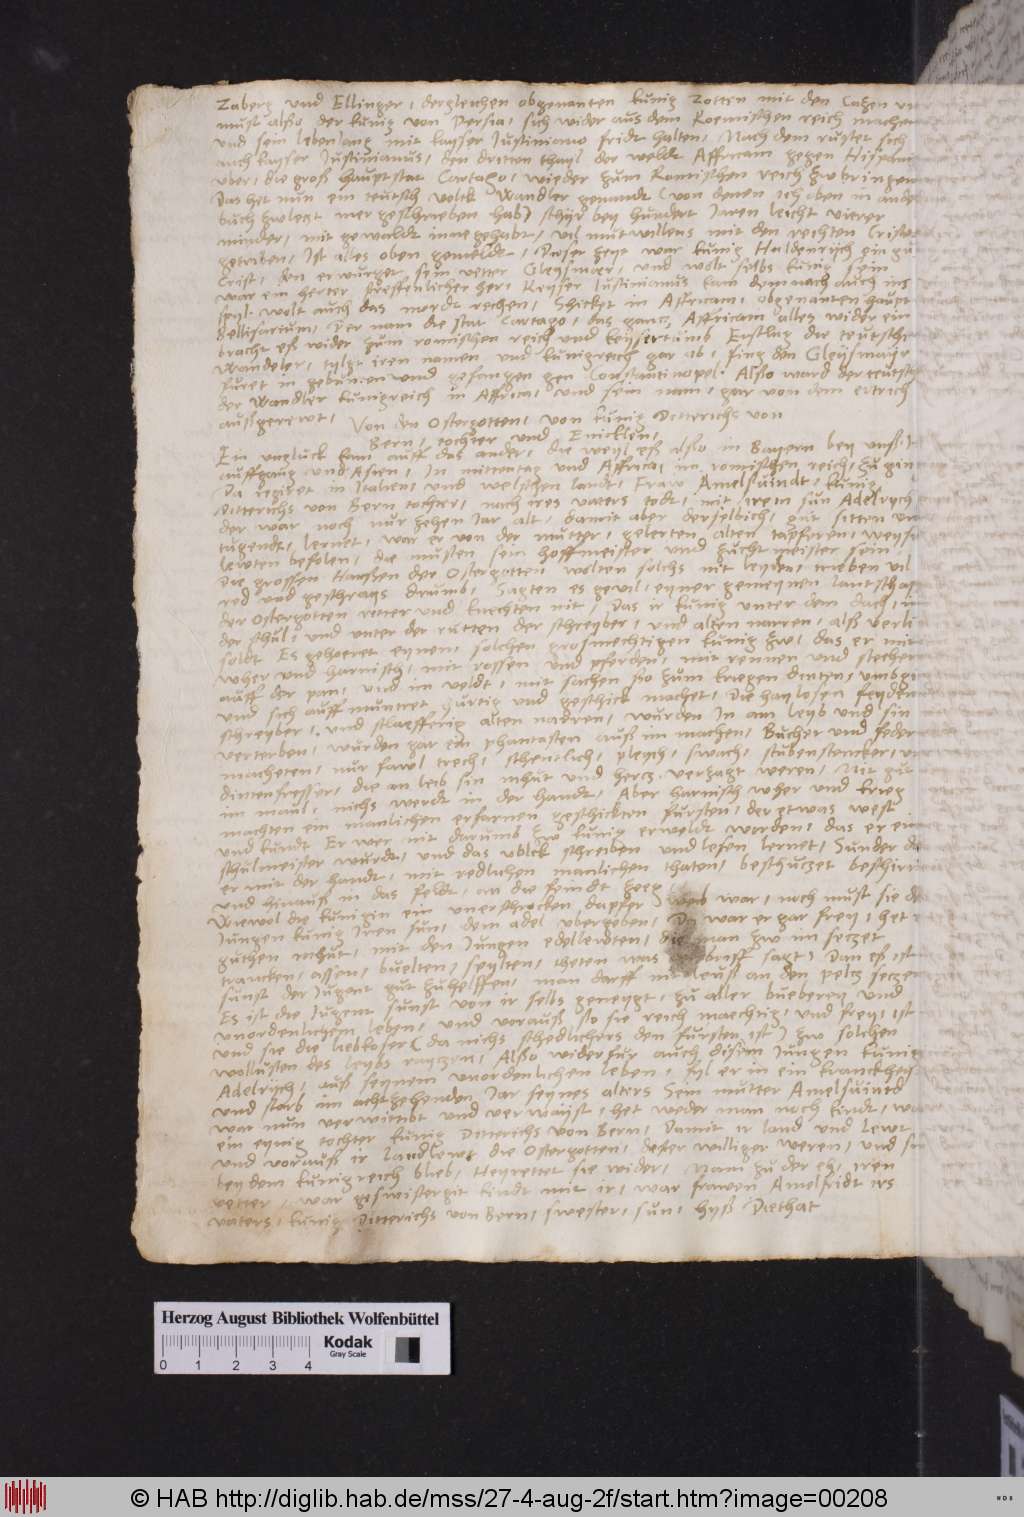 Zaberg und Ellinger, dergleichen obgenanten kunig Zotten mit den Cazen
must alßo der kunig von Persia, sich wider aus dem Roemischen reich machen
und sein lebenlang mit kaysser Justiniano fridt halten, Nach dem rustet sich
auch kaysser Justinianus, den dritten thayl der weldt Affricam gegen
uber, die groß hauptstat Cartago, wieder zum Romischen reich zw bringen
Das het nun ein teutsch volk Wandler genandt (von denen ich oben in
buch zwlezt mer geschrieben hab) schyr bey hundert Jaren leicht vierer
minder, mit gewaldt innegehabt, vil mutwillens mit den rechten
getriben, Ist alles oben gemeldt, Dieser zeyt war kunig Huldenrych ein
Crist, den erwurget sein vetter Gleysmair, und wolt selbs kunig sein
war ein herter streffenlicher her, Keyser Justinianus kam demnach auch ins
spyl wolt auch das mordt rechen, Shicket in Affricam, obgenanten haupt
Bellisarium, Der nam die stat Cartago, das ganz Affricam alles wider ein
bracht eß wider zum romischen reich und keyserthumb Erstlag die
Wandeler, tylgt iren namen und kunigreich gar ab, fing den Gleysmayr
furet in gebunden und gefangen gen Constantinopel. Alßo ward der
der Wandler kunigreich in Affrica, und sein nam, gar von dem ertrich
außgerewt, Von den Ostergotten, von kunig Ditterichs von
Bern, tochter und Enicklen,
Ein ungluck kam auff das ander, die weyl eß alßo in Bayern bey
auffgang und Asien, In mittentag und Affrica, im romischen reich, zu
Da regiret in Italien, und welschen landt, Fraw Amelsuindt, kunig
Ditterichs von Bern tochter, nach ires vaters todt, mit irem sun Adelrych
der war noch nur zehen Jar alt, damit aber derselbich, gut sitten
tugendt, lernet, war er von der mutter, gelerten alten tapferen,
lewten befolen, die musten sein hoffmeister und zuchtmeister sein
Die grossen Hanßen der Ostergotten wolten solchs nit leyden, trieben vil
red und geschrays drumb, Sagten es gevil, eyner gemeynen
der Ostergotten retter und knechten nit, Das ir kunig unter dem dach,
der schul, und unter der rutten der schreyber, und alten narren, alß
soldt Es gehoeret eynem, solchen grosmechtigen kunig zw, das er mit
wher und harnisch, mit rossen und pferden, mit rennen und stechen
auff der pan, und im veldt, mit sachen so zum kriegen dinten,
und sich auff muntret hurtig und geschick machet, Die haylosen
schreyber, und stlaefferig alten narren, wurden In am leyb und sin
verterben, wurden gar ein phantasten auß im machen, Bucher und feder
macheten, nur fawl trech, sthentlich, pleych, swach, stubenstencker,
dintenfresser, die an leib sin mhut und hercz verzagt weren, Nit gut
im maul, nichs werdt in der handt, Aber harnisch wher und krieg
machten ein manlichen erfarnen geschickten fursten, der etwas west
und kundt Er wer nit darumb zw kunig erweldt worden, das er ein
schulmeister wurde, und das volck schreiben und lesen lernet, Sunder
er mit der handt, mit redlichen manlichen thaten, beschuczet
und hinauß in das feldt, an die feindt zeeg
Wiewol die kunigin ein unerschrocken dapfer weib war, noch must sie
Jungen kunig Iren sun, dem adel ubergeben, Da war er gar frey, het
guthen mhut, mit den Jungen edellewten, die man zw im seczet
trancken, assen, buelten, spylten, theten was sagt, Dan eß ist
sunst der Jugent gut zuhelffen, man darff nit leuß an den pelcz seczen
Es ist die Jugent sunst von ir selbs geneygt, zu aller bueberey und
unordenlichem leben, und vorauß so sie reich maechtig, und frey, ist
und sie die liebkoser (da nichs schedlichers den fursten ist) zw solchen
wollusten des leybs rayczen, Alßo widerfur auch disem Jungen kunig
Adelrych, auß seynem unordenlichen leben, fyl er in ein kranckheyt
und starb im achtzehenden Jar seynes alters Sein mutter Amelsuintd
war nun verwietibt und verwayst, het weder man noch kindt,
ein eynig tochter kunig Ditterichs von Bern, Damit ir land und lewt
und vorauß ir landlewt die Ostergotten, dester williger weren, und
bey dem kunigreich blieb, Heyrettet sie wider, Nam zu der eh, iren
vetter, war geswistergit kindt mit ir, war frawen Amelfridt irs
vaters, kunig Ditterichs von Bern, swester, sun, hyß Diethat
Herzog August Bibliothek Wolfenbüttel
Kodak
Gray Scale
0 1 2 3 4
© HAB http://diglib.hab.de/mss/27-4-aug-2f/start.htm?image=00208